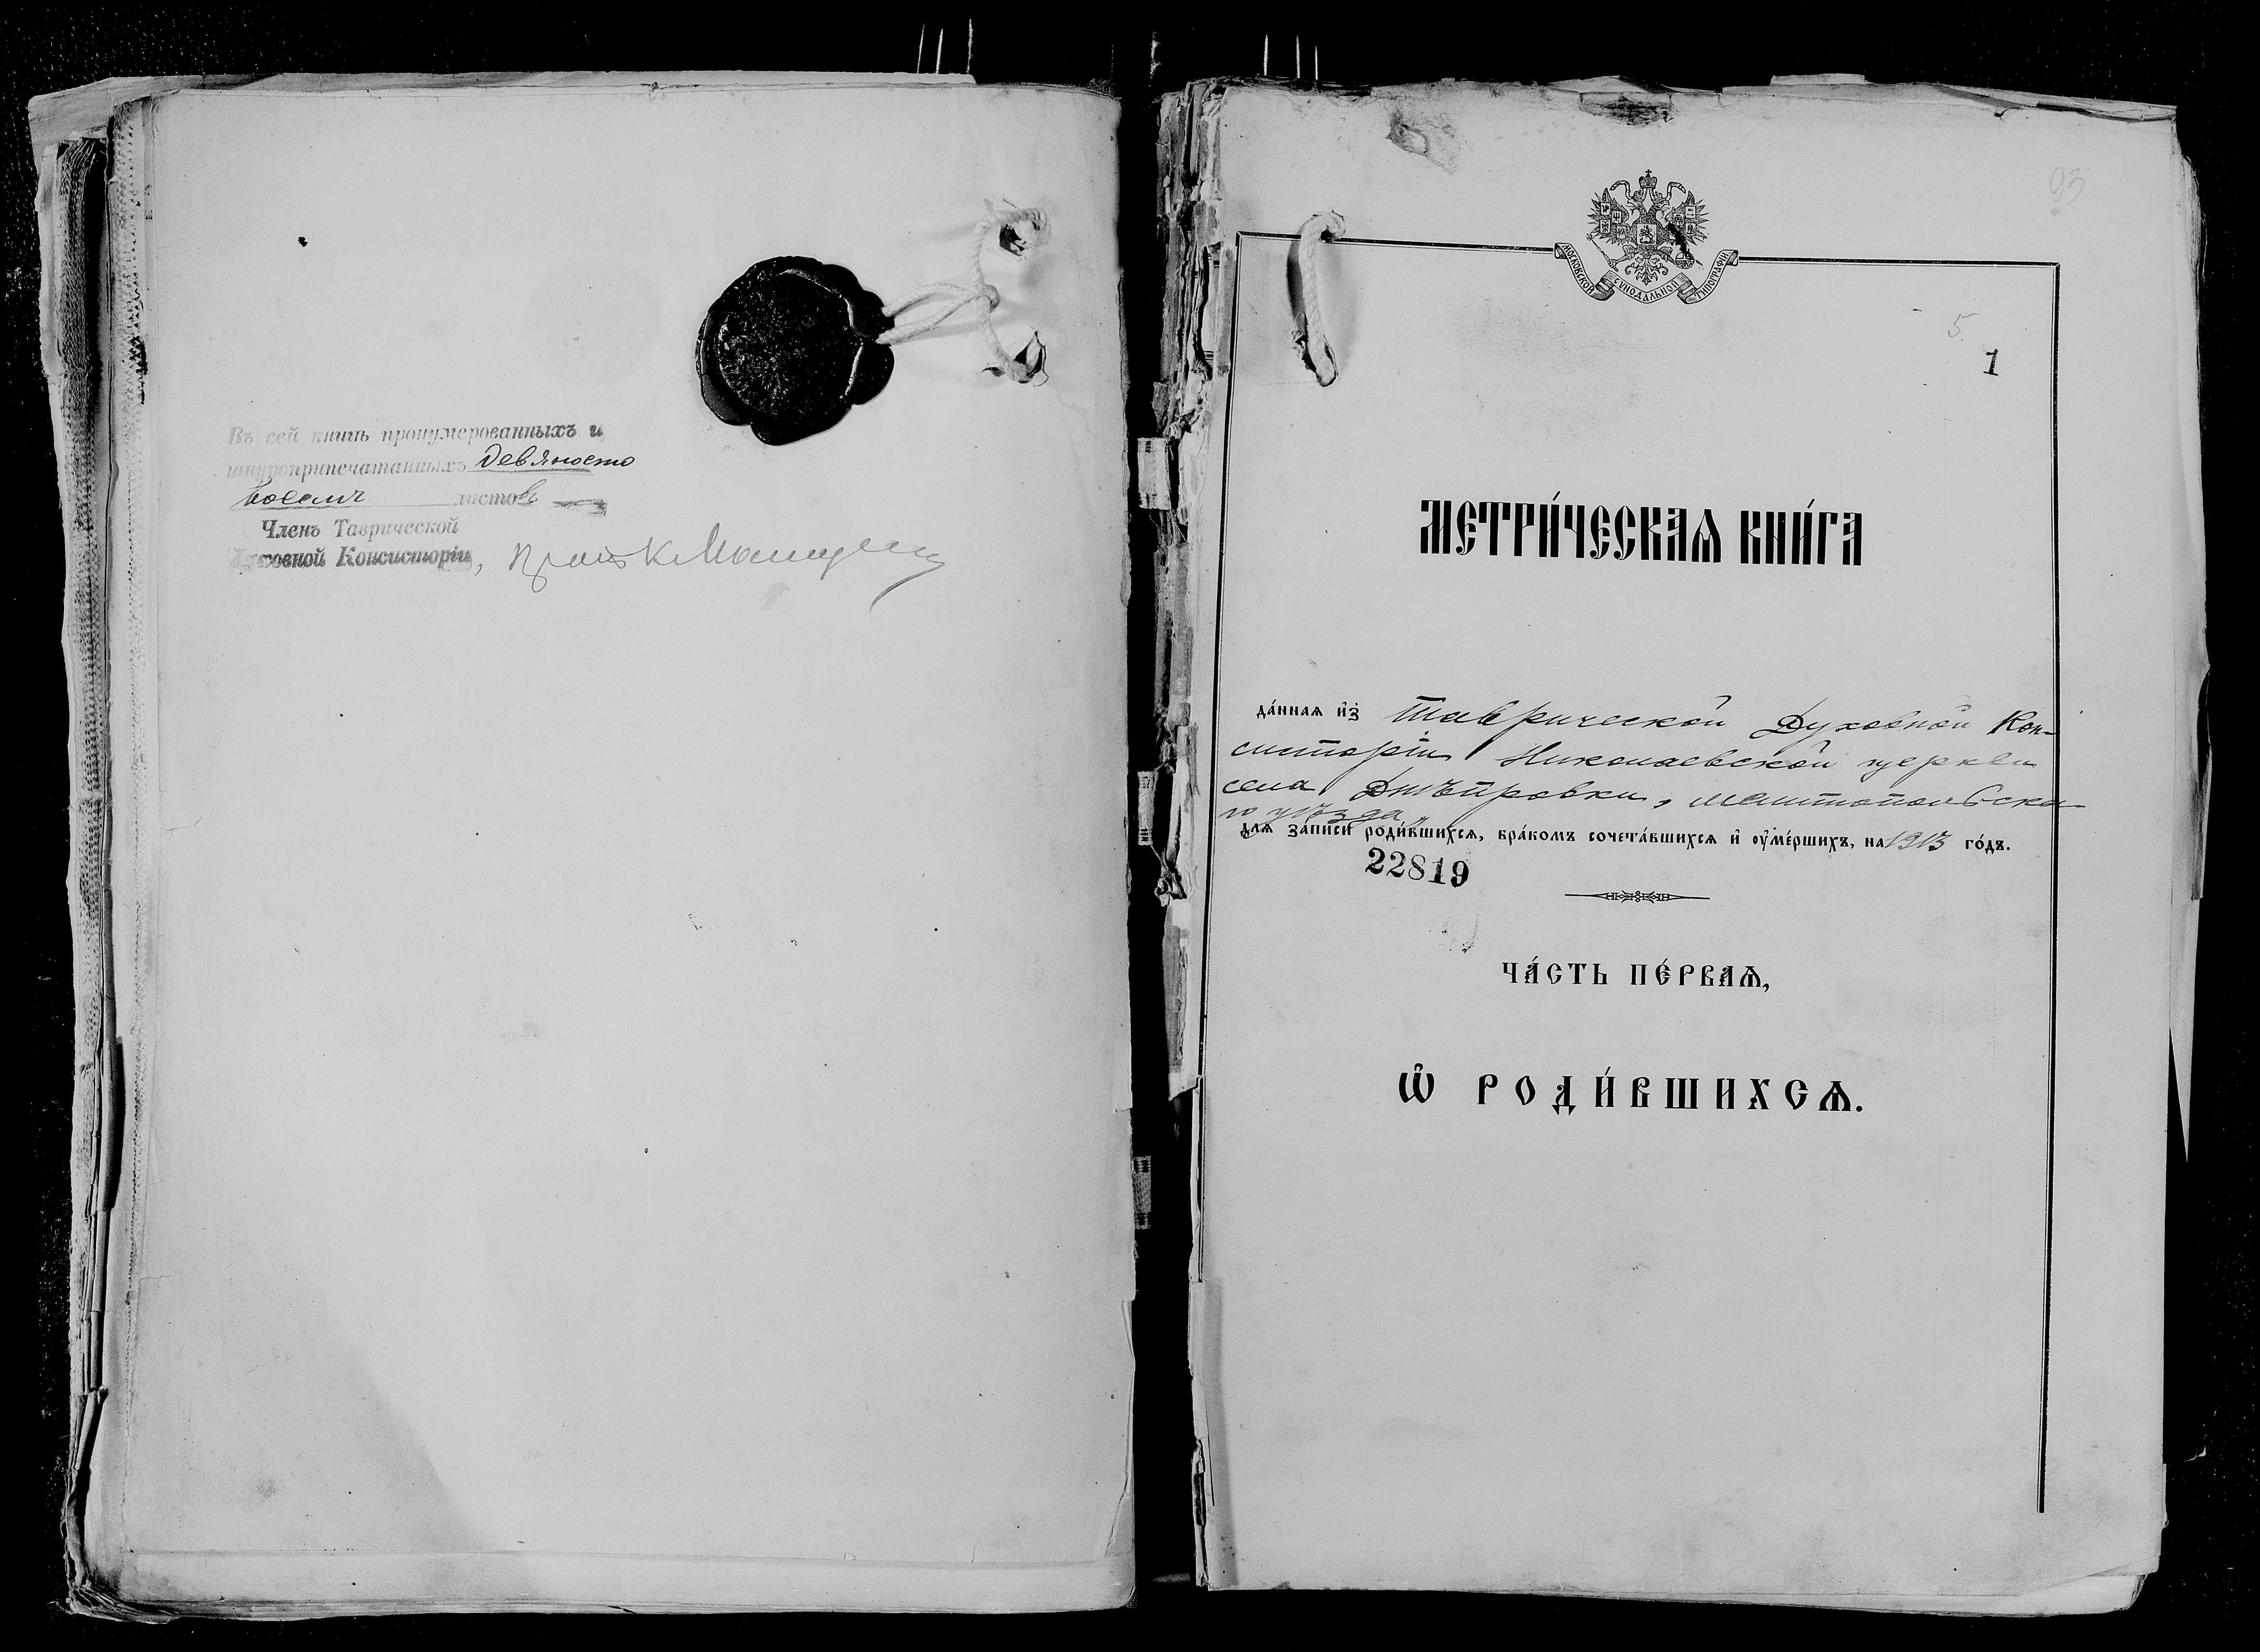 Въ сей книгѣ пронумерованныхъ и
шнуроприпечатанныхъ девяносто
восемь листовъ
Членъ Таврической
Духовной Консисторіи,
93
МОСКОВСКОЙ СѴНОДАЛЬНОЙ ТИПОГРАФІИ
5.
1
МЕТРИ́ЧЕСКАѦ КНИ́ГА
да́ннаѧ и҆з̾ Таврической Духовной Кон-
систоріи Николаевской церкви
села Днѣпровки, мелитопольска-
го уѣзда
длѧ за́писи роди́вшихсѧ, бра́комъ сочета́вшихсѧ и҆ оу҆ме́ршихъ, на 1913 го́дъ.
22819
ЧА́СТЬ ПЕ́РВАѦ,
Ѽ РОДИ́ВШИХСѦ.